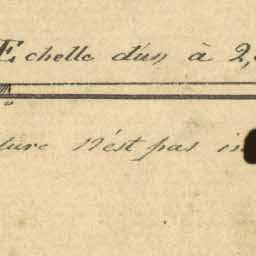 Echelle d'un à 2,
lure n'est pas in